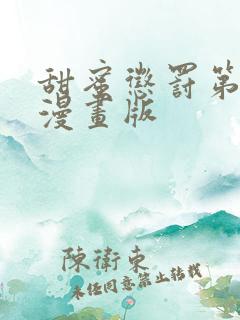 甜蜜懲罰第
漫畫版
陳衛東
未经同意禁止转载